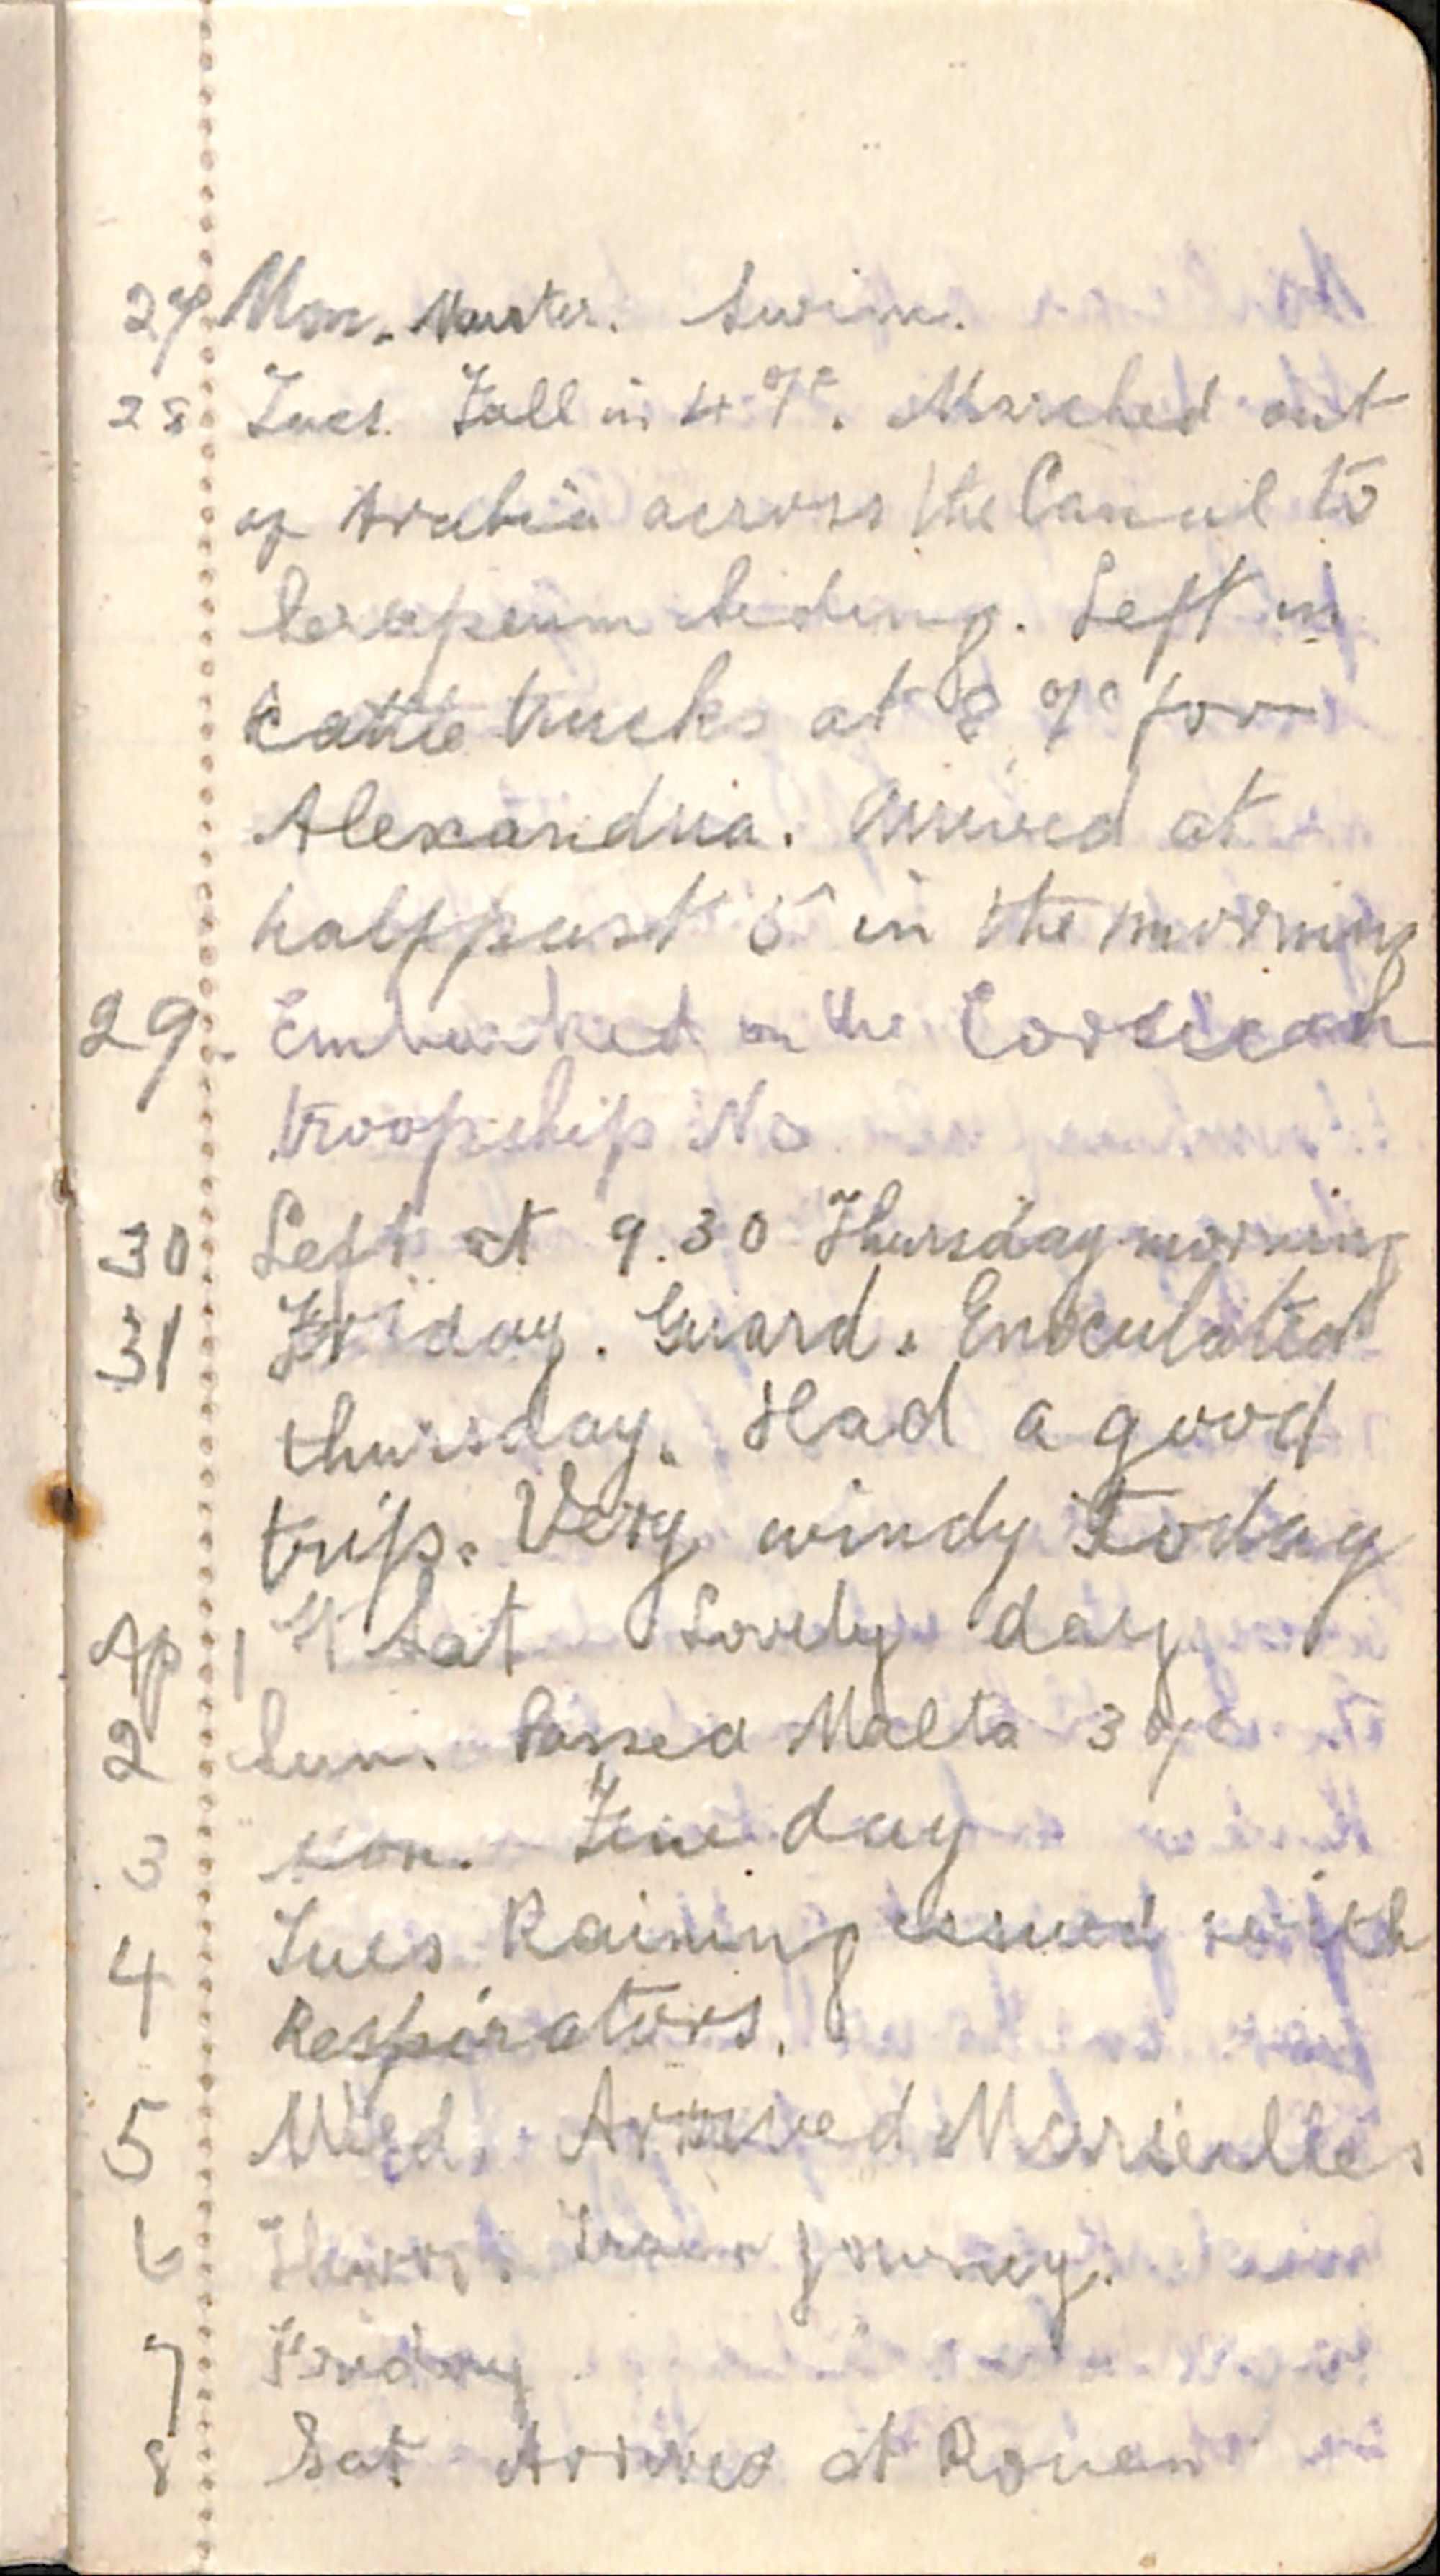 27 Mon. Muster. Swim.
28 Tues. Fall in 4 o/c. Marched out
of Arabia across the Canal to
Serapeum Siding. Left in
cattle trucks at 8 o/c for
Alexandria. Arrived at
half past 5 in the morning
29. Embarked on the Corsican
troopship No
30 Left at 9.30 Thursday morning
31 Friday. Guard. Enoculated
thursday. Had a good
trip. Very windy Today
Ap 1 Sat Lovely day
2 Sun. Passed Malta 3 o/c
3 Mon. Fine day
4 Tues Raining issued with
Respirators.
5 Wed. Arrived Marseilles
6 Thurs. Train journey.
7 Friday
8 Sat Arrived at Rouen